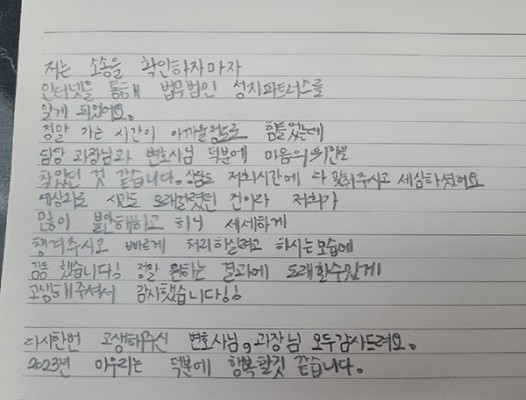 저는 소송을 확인하자마자
인터넷을 통해 법무법인 성지파트너스를
알게 되었어요.
정말 가는 시간이 아까울정도로 힘들었는데
담당 과장님과 변호사님 덕분에 마음의위안을
찾았던 것 같습니다. 상담도 저희시간에 다 맞춰주시고 세심하셨어요
예상외로 시간도 오래걸렸던 건이라 저희가
많이 불안해하고 하니 세세하게
챙겨주시고 빠르게 처리하실려고 하시는모습에
감동 했습니다! 정말 원하는 결과에 도래할수있게
고생해주셔서 감사했습니다!!
다시한번 고생해주신 변호사님, 과장님 모두감사드려요.
2023년 마무리는 덕분에 행복할것 같습니다.